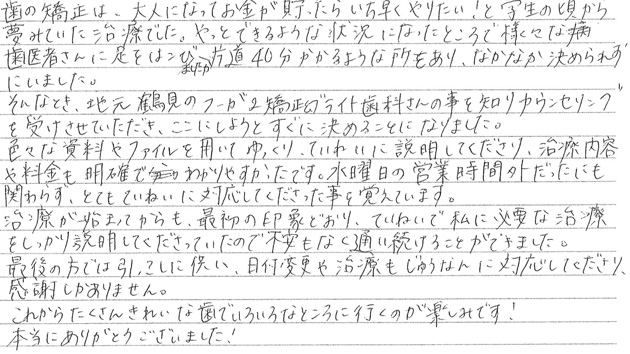 歯の矯正は、大人になってお金が貯ったらいち早くやりたい!と学生の頃から
夢みていた治療でした。やっとできるような状況になったところで様々な
歯医者さんに足をはこび 片道40分かかるような所もあり、なかなか決められず
にいました。
そんなとき、地元 鶴見の 矯正 ブライト歯科さんの事を知りカウンセリング
を受けさせていただき、ここにしようとすぐに決めることになりました。
色々な資料やファイルを用いてゆっくり、ていねいに説明してくださり、治療内容
や料金も明確で わかりやすかったです。水曜日の営業時間外だったにも
関わらず、とてもていねいに対応してくださった事を覚えています。
治療が始まってからも、最初の印象どおり、ていねいで私に必要な治療
をしっかり説明してくださっていたので不安もなく通い続けることができました。
最後の方では引っこしに伴い、日付変更や治療もじゅうなんに対応してくださり、
感謝しかありません。
これからたくさんきれいな歯でいろいろなところに行くのが楽しみです!
本当にありがとうございました!